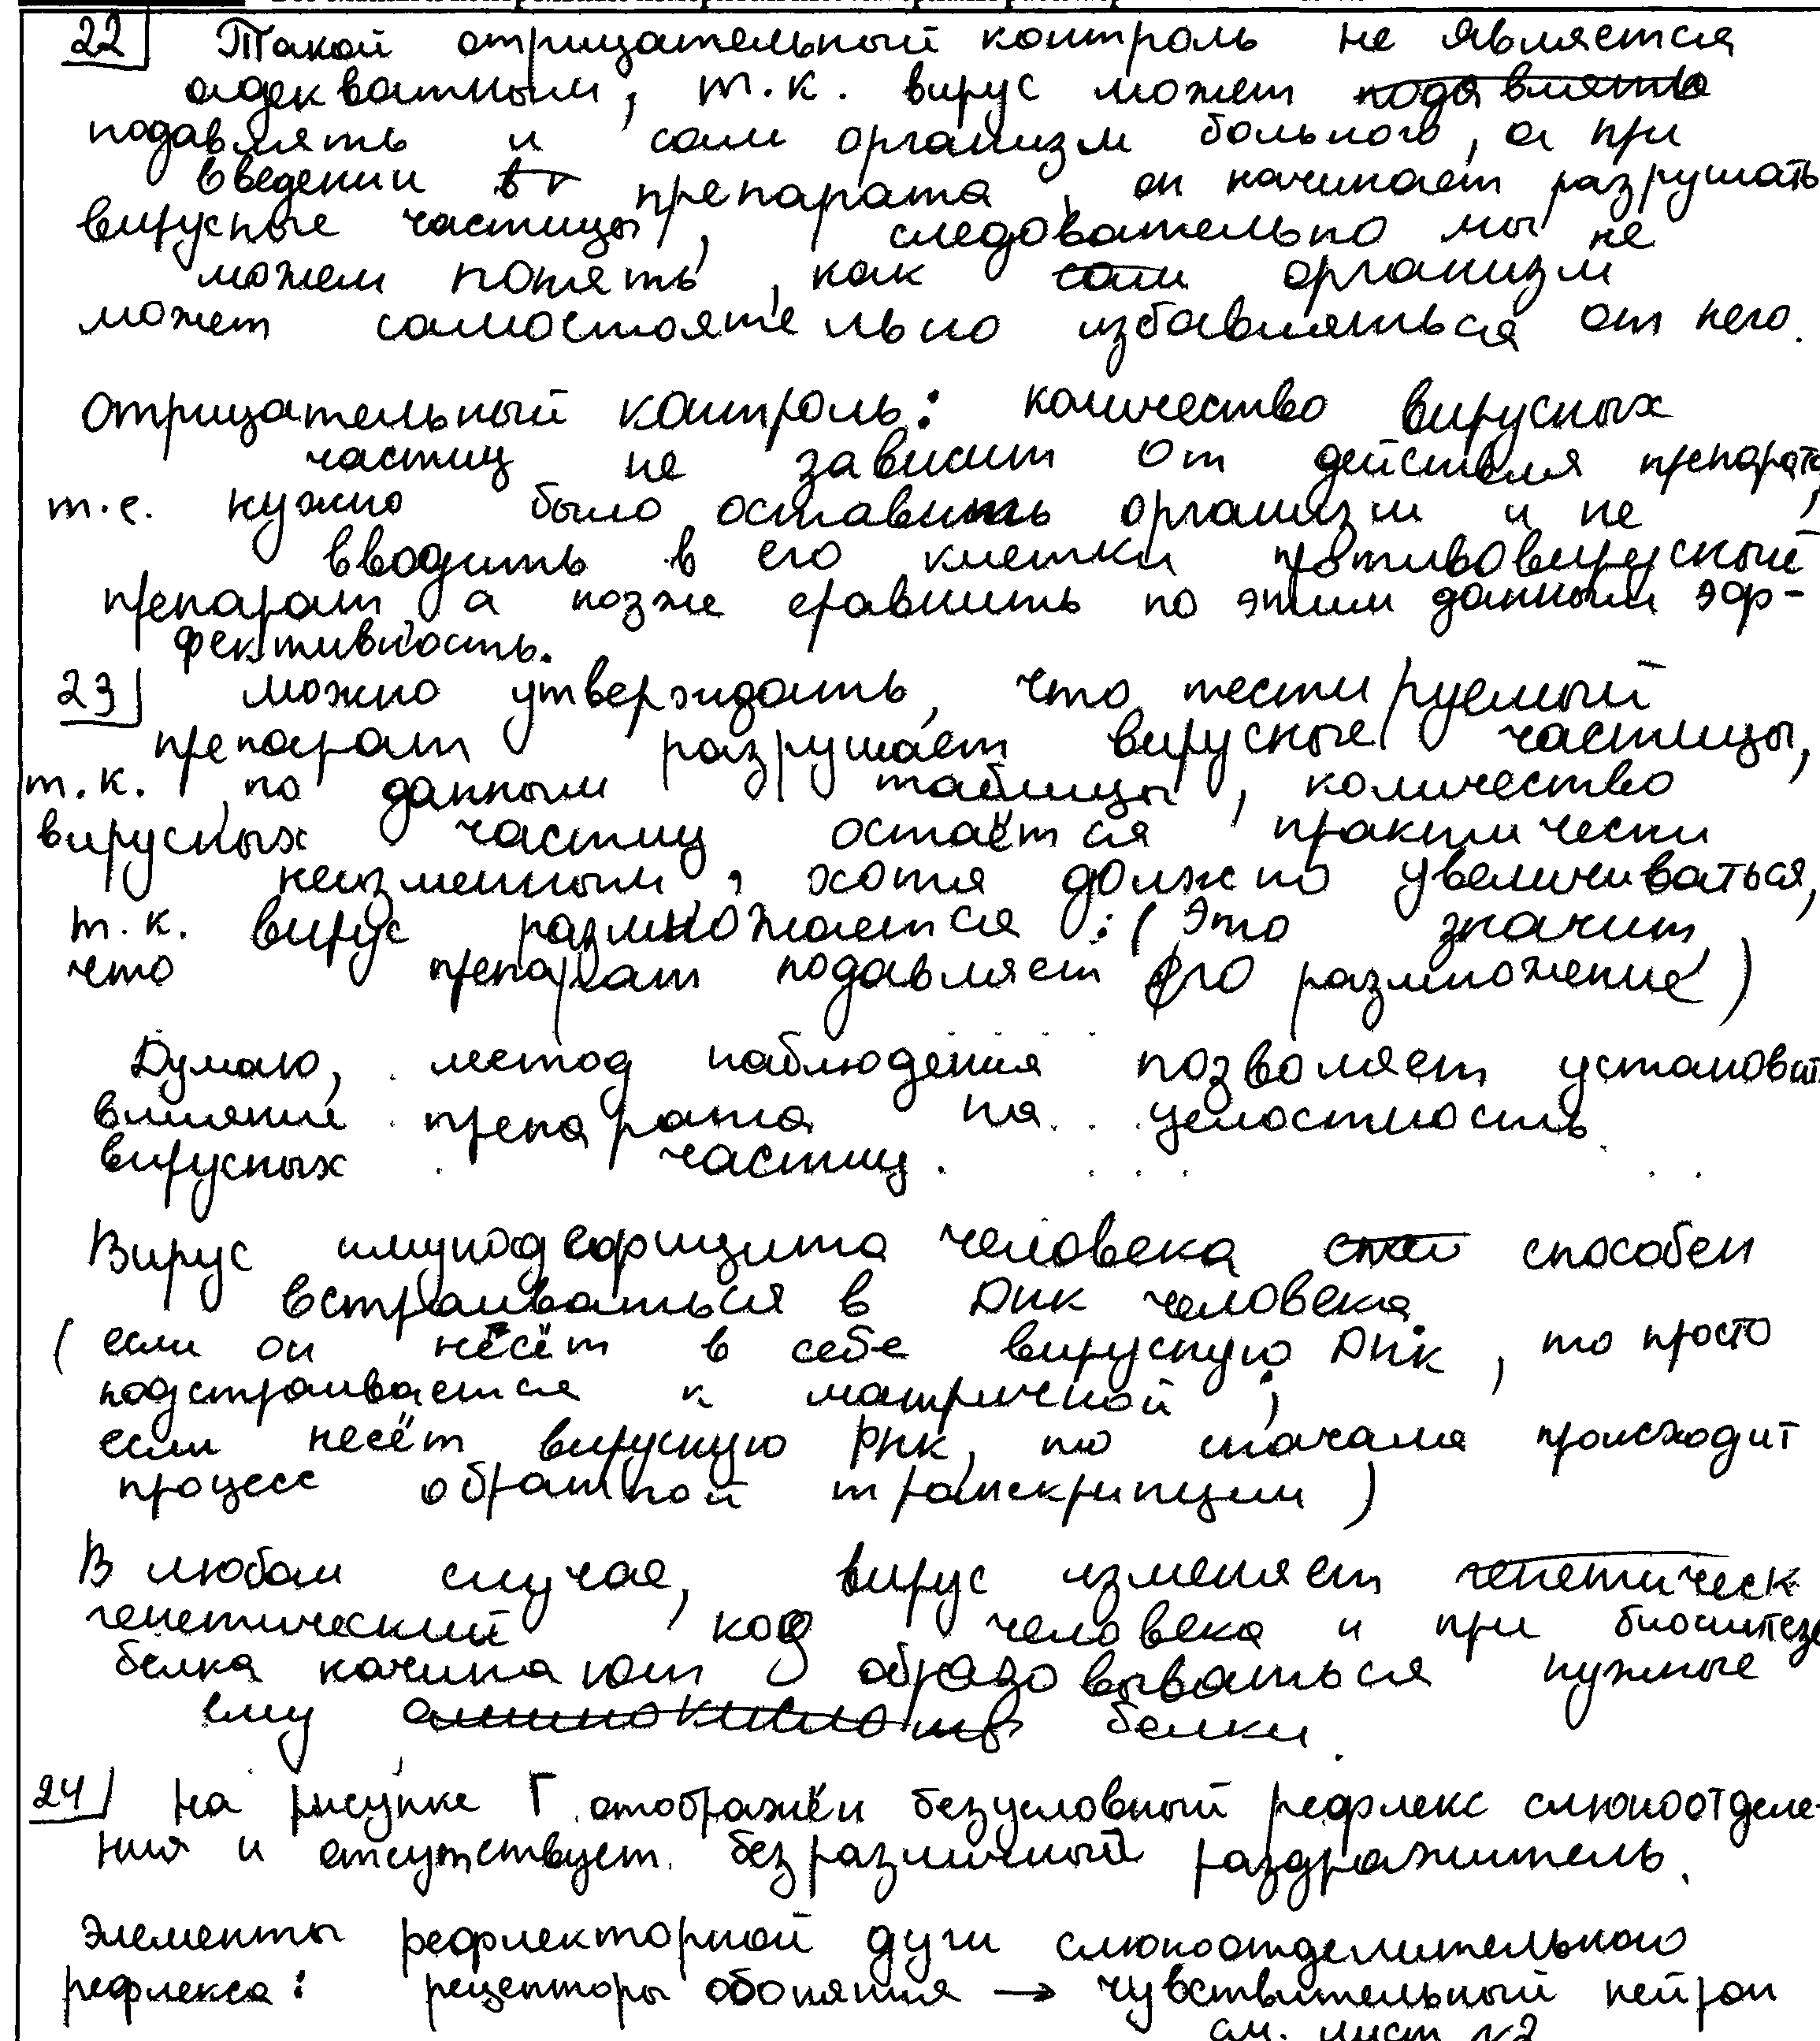 22 Такой отрицательный контроль не является
адекватным, т.к. вирус может подавлять
подавлять и сам организм больного, а при
введении препарата, он начинает разрушать
вирусные частицы, следовательно мы не
можем понять, как сам организм
может самостоятельно избавляться от него.
Отрицательный контроль: количество вирусных
частиц не зависит от действия препарата,
т.е. нужно было оставить организм и не
вводить в его клетки противовирусный
препарат а позже сравнить по этим данным эф-
фективность.
23 Можно утверждать, что тестируемый
препарат разрушает вирусные частицы,
т.к. по данным таблицы, количество
вирусных частиц остаётся практически
неизменным, хотя должно увеличиваться,
т.к. вирус размножается. (Это значит,
что препарат подавляет его размножение)
Думаю, метод наблюдения позволяет установить
влияние препарата на целостность
вирусных частиц.
Вирус имунодефицита человека способен
встраиваться в ДНК человека.
(если он несёт в себе вирусную ДНК, то просто
подстраивается к матричной;
если несёт вирусную РНК, то сначала происходит
процесс обратной транскрипции)
В любом случае, вирус изменяет генетическ
генетический код человека и при биосинтезе
белка начинают образовываться нужные
ему аминокислоты белки.
24 На рисунке Г отображён безусловный рефлекс слюноотделе-
ния и отсутствует безразличный раздражитель.
Элементы рефлекторной дуги слюноотделительного
рефлекса: рецепторы обоняния → чувствительный нейрон
см. лист №2